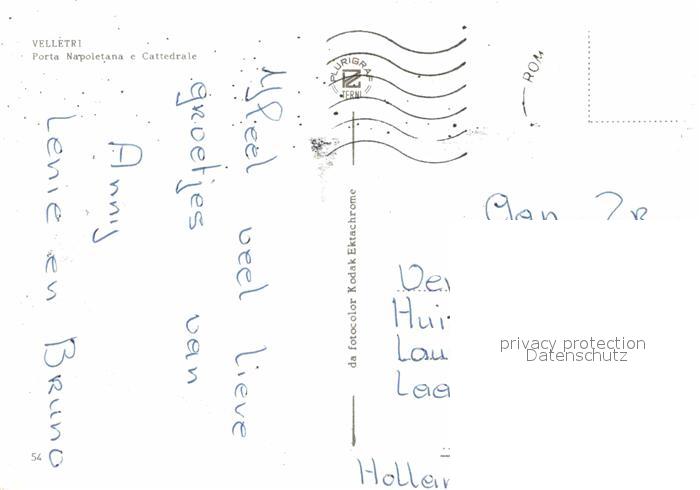 VELLETRI
Porta Napoletana e Cattedrale
Heel veel lieve
groetjes van
Annij
Lenie en Bruno
54
PLURIGRA
TERNI
da fotocolor Kodak Ektachrome
ROM
Hui
Lau
Laa
privacy protection
Datenschutz